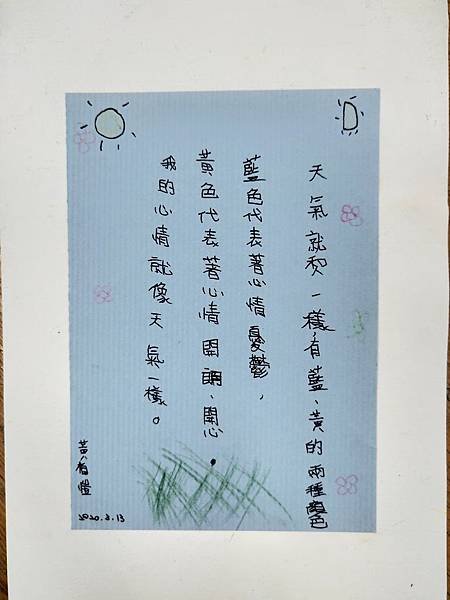 天氣就和一樣,有藍、黃的兩種顏色
藍色代表著心情憂鬱,
黃色代表著心情開朗、開心。
我的心情就像天氣一樣。
黃宥愷
2020.3.13